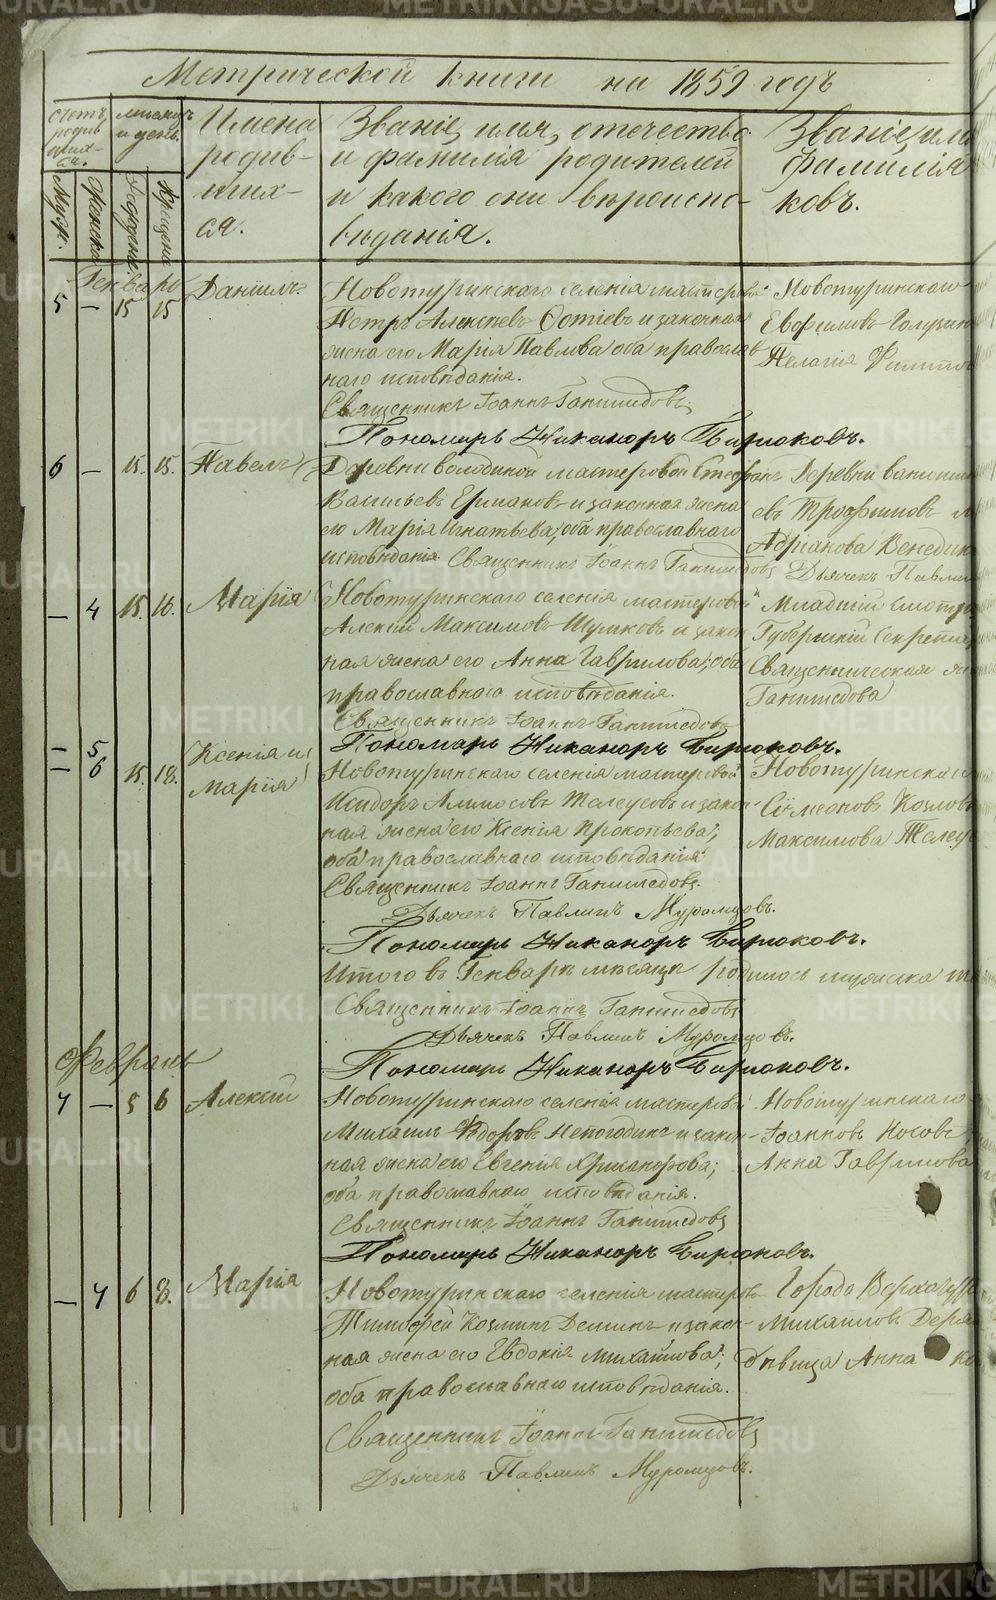 Метрической книги на 1859 годъ
Счетъ родив шихся.
Муж. Женска
месяцъ и день.
Рожден. Крещен.
Имена родив- ших- ся.
Званіе, имя, отечество
и фамилія родителей
и какого они вѣроиспо-
вѣданія.
Званіе, имя
фамилія
ковъ.
Генварь
5 — 15 15 Даніилъ.
Новотуринскаго селенія мастеровой
Петръ Алексѣевъ и законная
жена его Марія Павлова оба православ
наго исповѣданія.
Священникъ Іоаннъ Ганимедовъ
Пономарь Никаноръ Бирюковъ.
Новотуринскаго
Евфимовъ
Пелагія
6 — 15. 15. Павелъ
Деревни Володиной мастеровой Стефанъ
Васильевъ Ермаковъ и законная жена
его Марія Игнатьева; оба православнаго
исповѣданія Священникъ Іоаннъ Ганимедовъ
Деревни
евъ Трофимовъ
Адріанова
Дьячекъ Павлинъ
— 4 15. 16. Марія
Новотуринскаго селенія мастеровой
Алексій Максимовъ и закон
ная жена его Анна Гаврилова; оба
православнаго исповѣданія.
Священникъ Іоаннъ Ганимедовъ
Пономарь Никаноръ Бирюковъ.
Младшій
Губернскій Секретар
Священническая
Ганимедова
— 5
— 6 15. 18. Ксенія и
Марія
Новотуринскаго селенія мастеровой
Исидоръ и закон-
ная жена его Ксенія Прокопьева;
оба православнаго исповѣданія
Священникъ Іоаннъ Ганимедовъ.
Дьячекъ Павлинъ Муромцовъ.
Пономарь Никаноръ Бирюковъ.
Новотуринскаго
Сѵмеоновъ Козловъ
Максимова
Итого въ Генварѣ мѣсяцѣ родилось мужска
Священникъ Іоаннъ Ганимедовъ
Дьячекъ Павлинъ Муромцовъ.
Пономарь Никаноръ Бирюковъ.
Февраль
7 — 5 6 Алексій
Новотуринскаго селенія мастеровой
Михаилъ Ѳедоровъ и закон-
ная жена его Евгенія
оба православнаго исповѣданія.
Священникъ Іоаннъ Ганимедовъ
Пономарь Никаноръ Бирюковъ.
Новотуринскаго
Іоанновъ Носовъ
Анна Гаврилова
— 7 6 8. Марія
Новотуринскаго селенія мастеров
Тимофей Козминъ Деминъ и закон-
ная жена его Евдокія Михайлова;
оба православнаго исповѣданія.
Священникъ Іоаннъ Ганимедовъ
Дьячекъ Павлинъ Муромцовъ.
Города Верхотурья
Михаиловъ
дѣвица Анна
METRIKI.GASO-URAL.RU